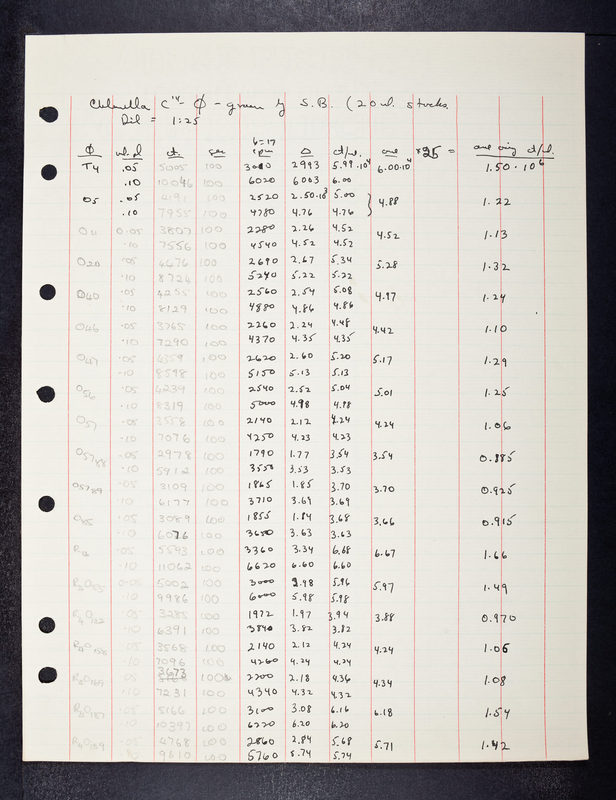 C¹⁴ - ϕ - grown by S.B. (20 ul. stocks
Dil = 1:25
b=17
ϕ ul. pl ct. sec cpm Δ ct/ul. ave × 25 = ave ct/ul.
T4 .05 5005 100 3000 2993 5.99·10⁴ 6.00·10⁴ 1.50·10⁶
.10 10046 100 6020 6003 6.00
O5 .05 4191 100 2520 2.50·10³ 5.00 } 4.88 1.22
.10 7955 100 4780 4.76 4.76
O11 0.05 3807 100 2280 2.26 4.52 4.52 1.13
.10 7556 100 4540 4.52 4.52
O20 .05 4476 100 2690 2.67 5.34 5.28 1.32
.10 8724 100 5240 5.22 5.22
O40 .05 4255 100 2560 2.54 5.08 4.97 1.24
.10 8129 100 4880 4.86 4.86
O46 .05 3765 100 2260 2.24 4.48 4.42 1.10
.10 7290 100 4370 4.35 4.35
O47 .05 4359 100 2620 2.60 5.20 5.17 1.29
.10 8598 100 5150 5.13 5.13
O56 .05 4239 100 2540 2.52 5.04 5.01 1.25
.10 8319 100 5000 4.98 4.98
O57 .05 3558 100 2140 2.12 4.24 4.24 1.06
.10 7076 100 4250 4.23 4.23
O57/88 .05 2978 100 1790 1.77 3.54 3.54 0.885
.10 5912 100 3550 3.53 3.53
O57/89 .05 3109 100 1865 1.85 3.70 3.70 0.925
.10 6177 100 3710 3.69 3.69
.05 3089 100 1855 1.84 3.68 3.66 0.915
.10 6076 100 3650 3.63 3.63
.05 5593 100 3360 3.34 6.68 6.67 1.66
.10 11062 100 6620 6.60 6.60
0.05 5002 100 3000 2.98 5.96 5.97 1.49
.10 9986 100 6000 5.98 5.98
.05 3285 100 1972 1.97 3.94 3.88 0.970
.10 6391 100 3840 3.82 3.82
.05 3568 100 2140 2.12 4.24 4.24 1.06
.10 7096 100 4260 4.24 4.24
.05 3673 100 2200 2.18 4.36 4.34 1.08
.10 7231 100 4340 4.32 4.32
.05 5166 100 3100 3.08 6.16 6.18 1.54
.10 10397 100 6220 6.20 6.20
.05 4768 100 2860 2.84 5.68 5.71 1.42
.10 9610 100 5760 5.74 5.74